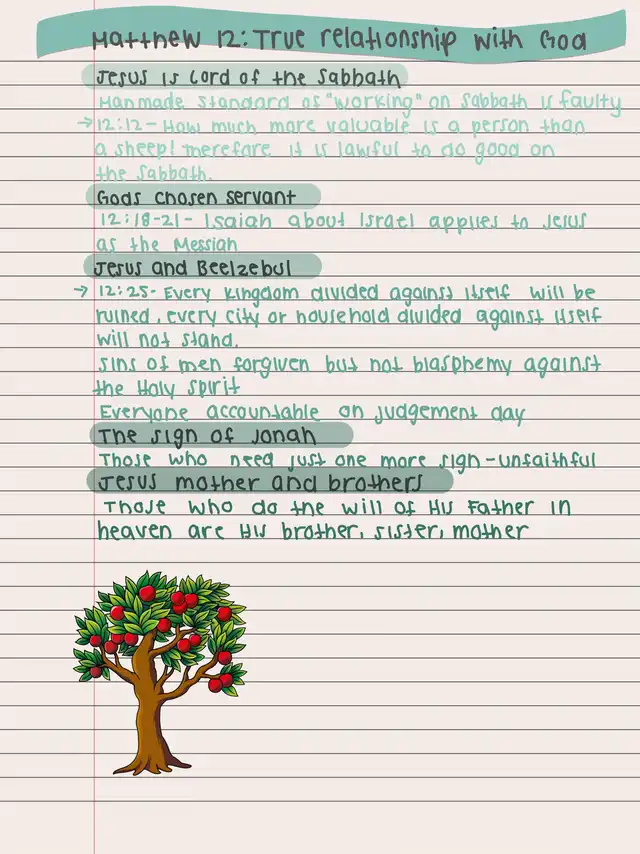 Matthew 12: True relationship with God
Jesus is Lord of the Sabbath
Manmade standard of "working" on Sabbath is faulty
→ 12:12 - How much more valuable is a person than
a sheep! Therefore it is lawful to do good on
the Sabbath.
Gods chosen servant
12:18-21 - Isaiah about Israel applies to Jesus
as the Messiah
Jesus and Beelzebul
→ 12:25 - Every kingdom divided against itself will be
ruined, every city or household divided against itself
will not stand.
Sins of men forgiven but not blasphemy against
the Holy Spirit
Everyone accountable on judgement day
The sign of Jonah
Those who need just one more sign - unfaithful
Jesus mother and brothers
Those who do the will of His Father in
heaven are His brother, sister, mother